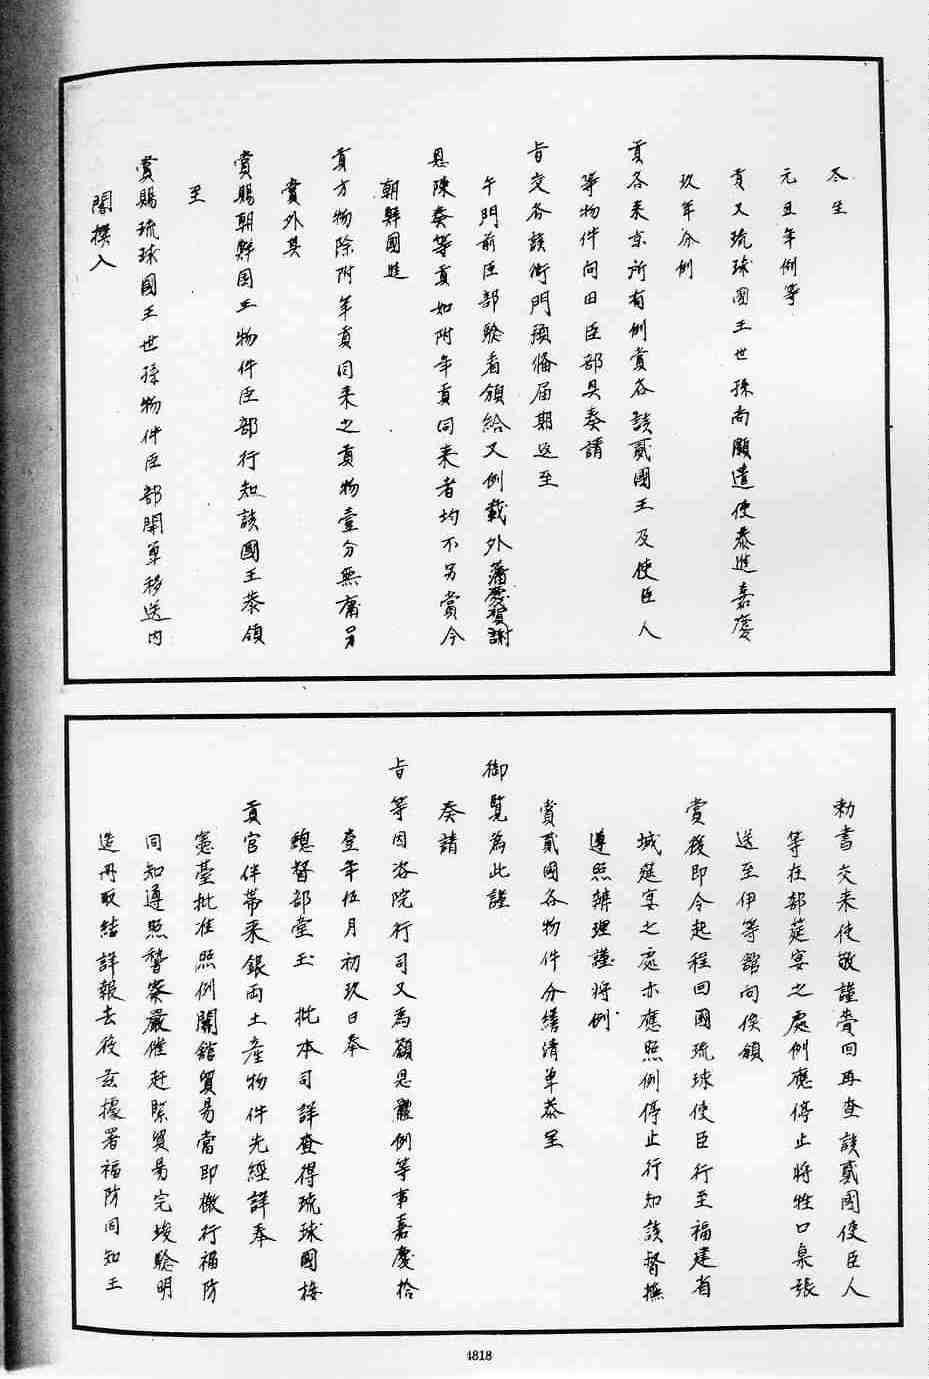 冬至
元旦年例等
貢又琉球國王世孫尚灝遣使恭進嘉慶
玖年分例
貢各來京所有例賞各該貳國王及使臣人
等物件向由臣部具奏請
旨交各該衙門預備屆期送至
午門前臣部驗看頒給又例載外藩慶賀謝
恩陳奏等貢如附年貢同來者均不另賞今
朝鮮國進
貢方物除附年貢同來之貢物壹分無庸另
賞外其
賞賜朝鮮國王物件臣部行知該國王恭領
至
賞賜琉球國王世孫物件臣部開單移送內
閣撰入
勅書交來使敬謹賚回再查該貳國使臣人
等在部筵宴之處例應停止將牲口桌張
送至伊等館向俟領
賞後即令起程回國琉球使臣行至福建省
城筵宴之處亦應照例停止行知該督撫
遵照辦理謹將例
賞貳國各物件分繕清單恭呈
御覽為此謹
奏請
旨等因洛院行司又為籲恩體例等事嘉慶拾
壹年伍月初玖日奉
總督部堂玉 批本司詳查得琉球國接
貢官伴帶來銀両土產物件先經詳奉
憲臺批准照例開館貿易當即檄行福防
同知遵照督察嚴催赶緊貿易完竣驗明
造冊取結詳報去後玆據署福防同知王
4818